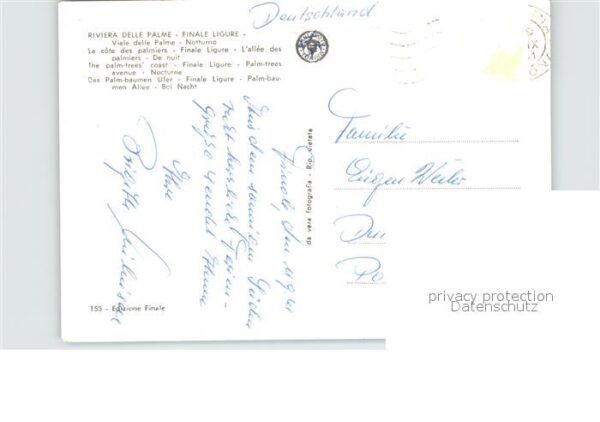 Deutschland
RIVIERA DELLE PALME - FINALE LIGURE -
Viale delle Palme - Notturno
La côte des palmiers - Finale Ligure - L'allée des
palmiers - De nuit
The palm-trees' coast - Finale Ligure - Palm-trees
avenue - Nocturne
Das Palm-baumen Ufer - Finale Ligure - Palm-bau-
men Allee - Bei Nacht
den 11.9.61
Aus dem sonnigen Süden
recht herzliche Ferien-
Grüße sendet Ihnen
Ihre
Brigitte
da vera fotografia - Rip. vietata
Familie
Eugen Weiler
153 - Edizione Finale
privacy protection
Datenschutz